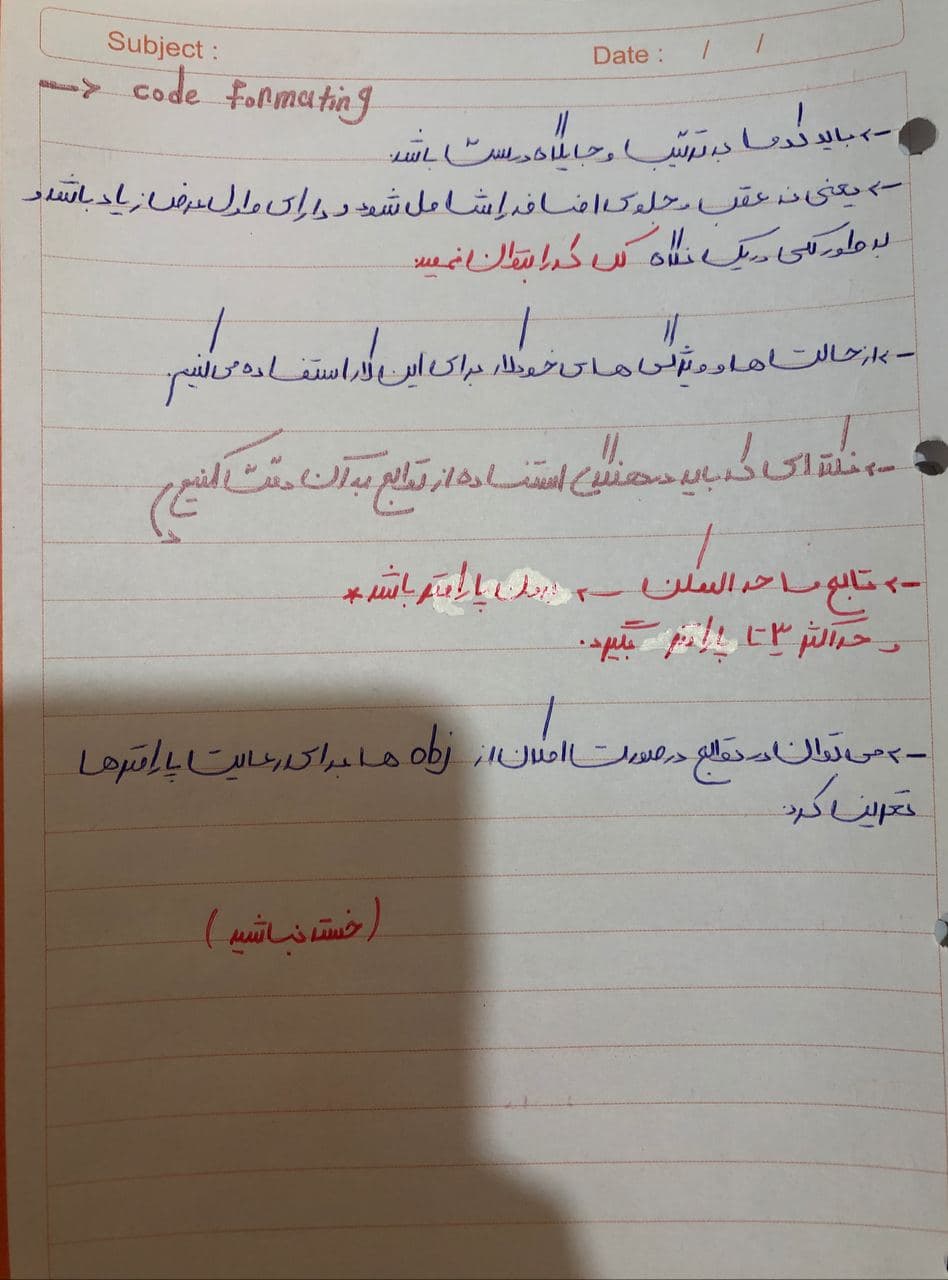 Subject :
Date : / /
→ code formating
→ باید کد ها به ترتیب و جایگاه درست باشد.
→ یعنی نه عقب و جلوی اضافه را شامل شود و دارای طول عرض زیاد باشد و
به طور کلی در یک نگاه کل کد را انتقال نمید
→ از حالت ها و ویژگی های خودکار برای این کار استفاده می کنیم.
→ نکته ای که باید در هنگام استفاده از توابع به آن دقت کنیم
→ تابع ما حد المکن → بدون پارامتر باشد *
و حداکثر ۳ تا پارامتر بگیرد.
→ می توان در توابع در صورت امکان از obj ها برای رعایت پارامترها
تعریف کرد.
(خسته نباشید)